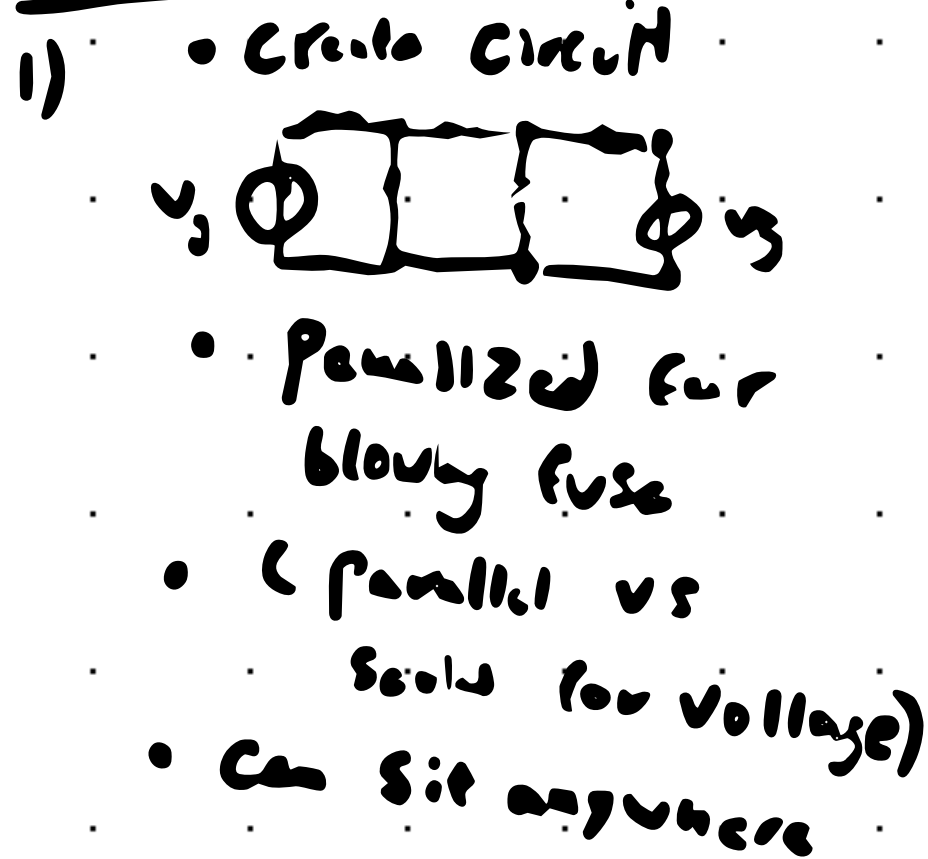 1) • Create Circuit
Vg Vg
• Penalized for
blowing fuse
• (parallel vs
series for voltage)
• Can sit anywhere